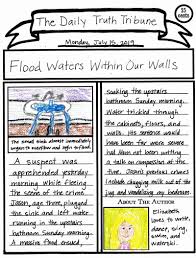 The Daily Truth Tribune
25 cents
Monday, July 15, 2019
Flood Waters Within Our Walls
The small sink almost immediately
began to overflow and
A suspect was
apprehended yesterday
morning while fleeing
the scene of the crime.
Jason, age three, plugged
the sink and left water
running in the upstairs
bathroom Sunday morning.
A massive flood ensued,
soaking the upstairs
bathroom Sunday morning.
Water trickled through
the cabinets, floors, and
walls. His sentence would
have been more severe
had he not been writing
a talk on compassion at
the time. Jason's previous crimes
include chugging milk out of the
jug and vandalizing walls.
About The Author
Elizabeth
loves to write,
dance, sing,
swim, and
waterski.